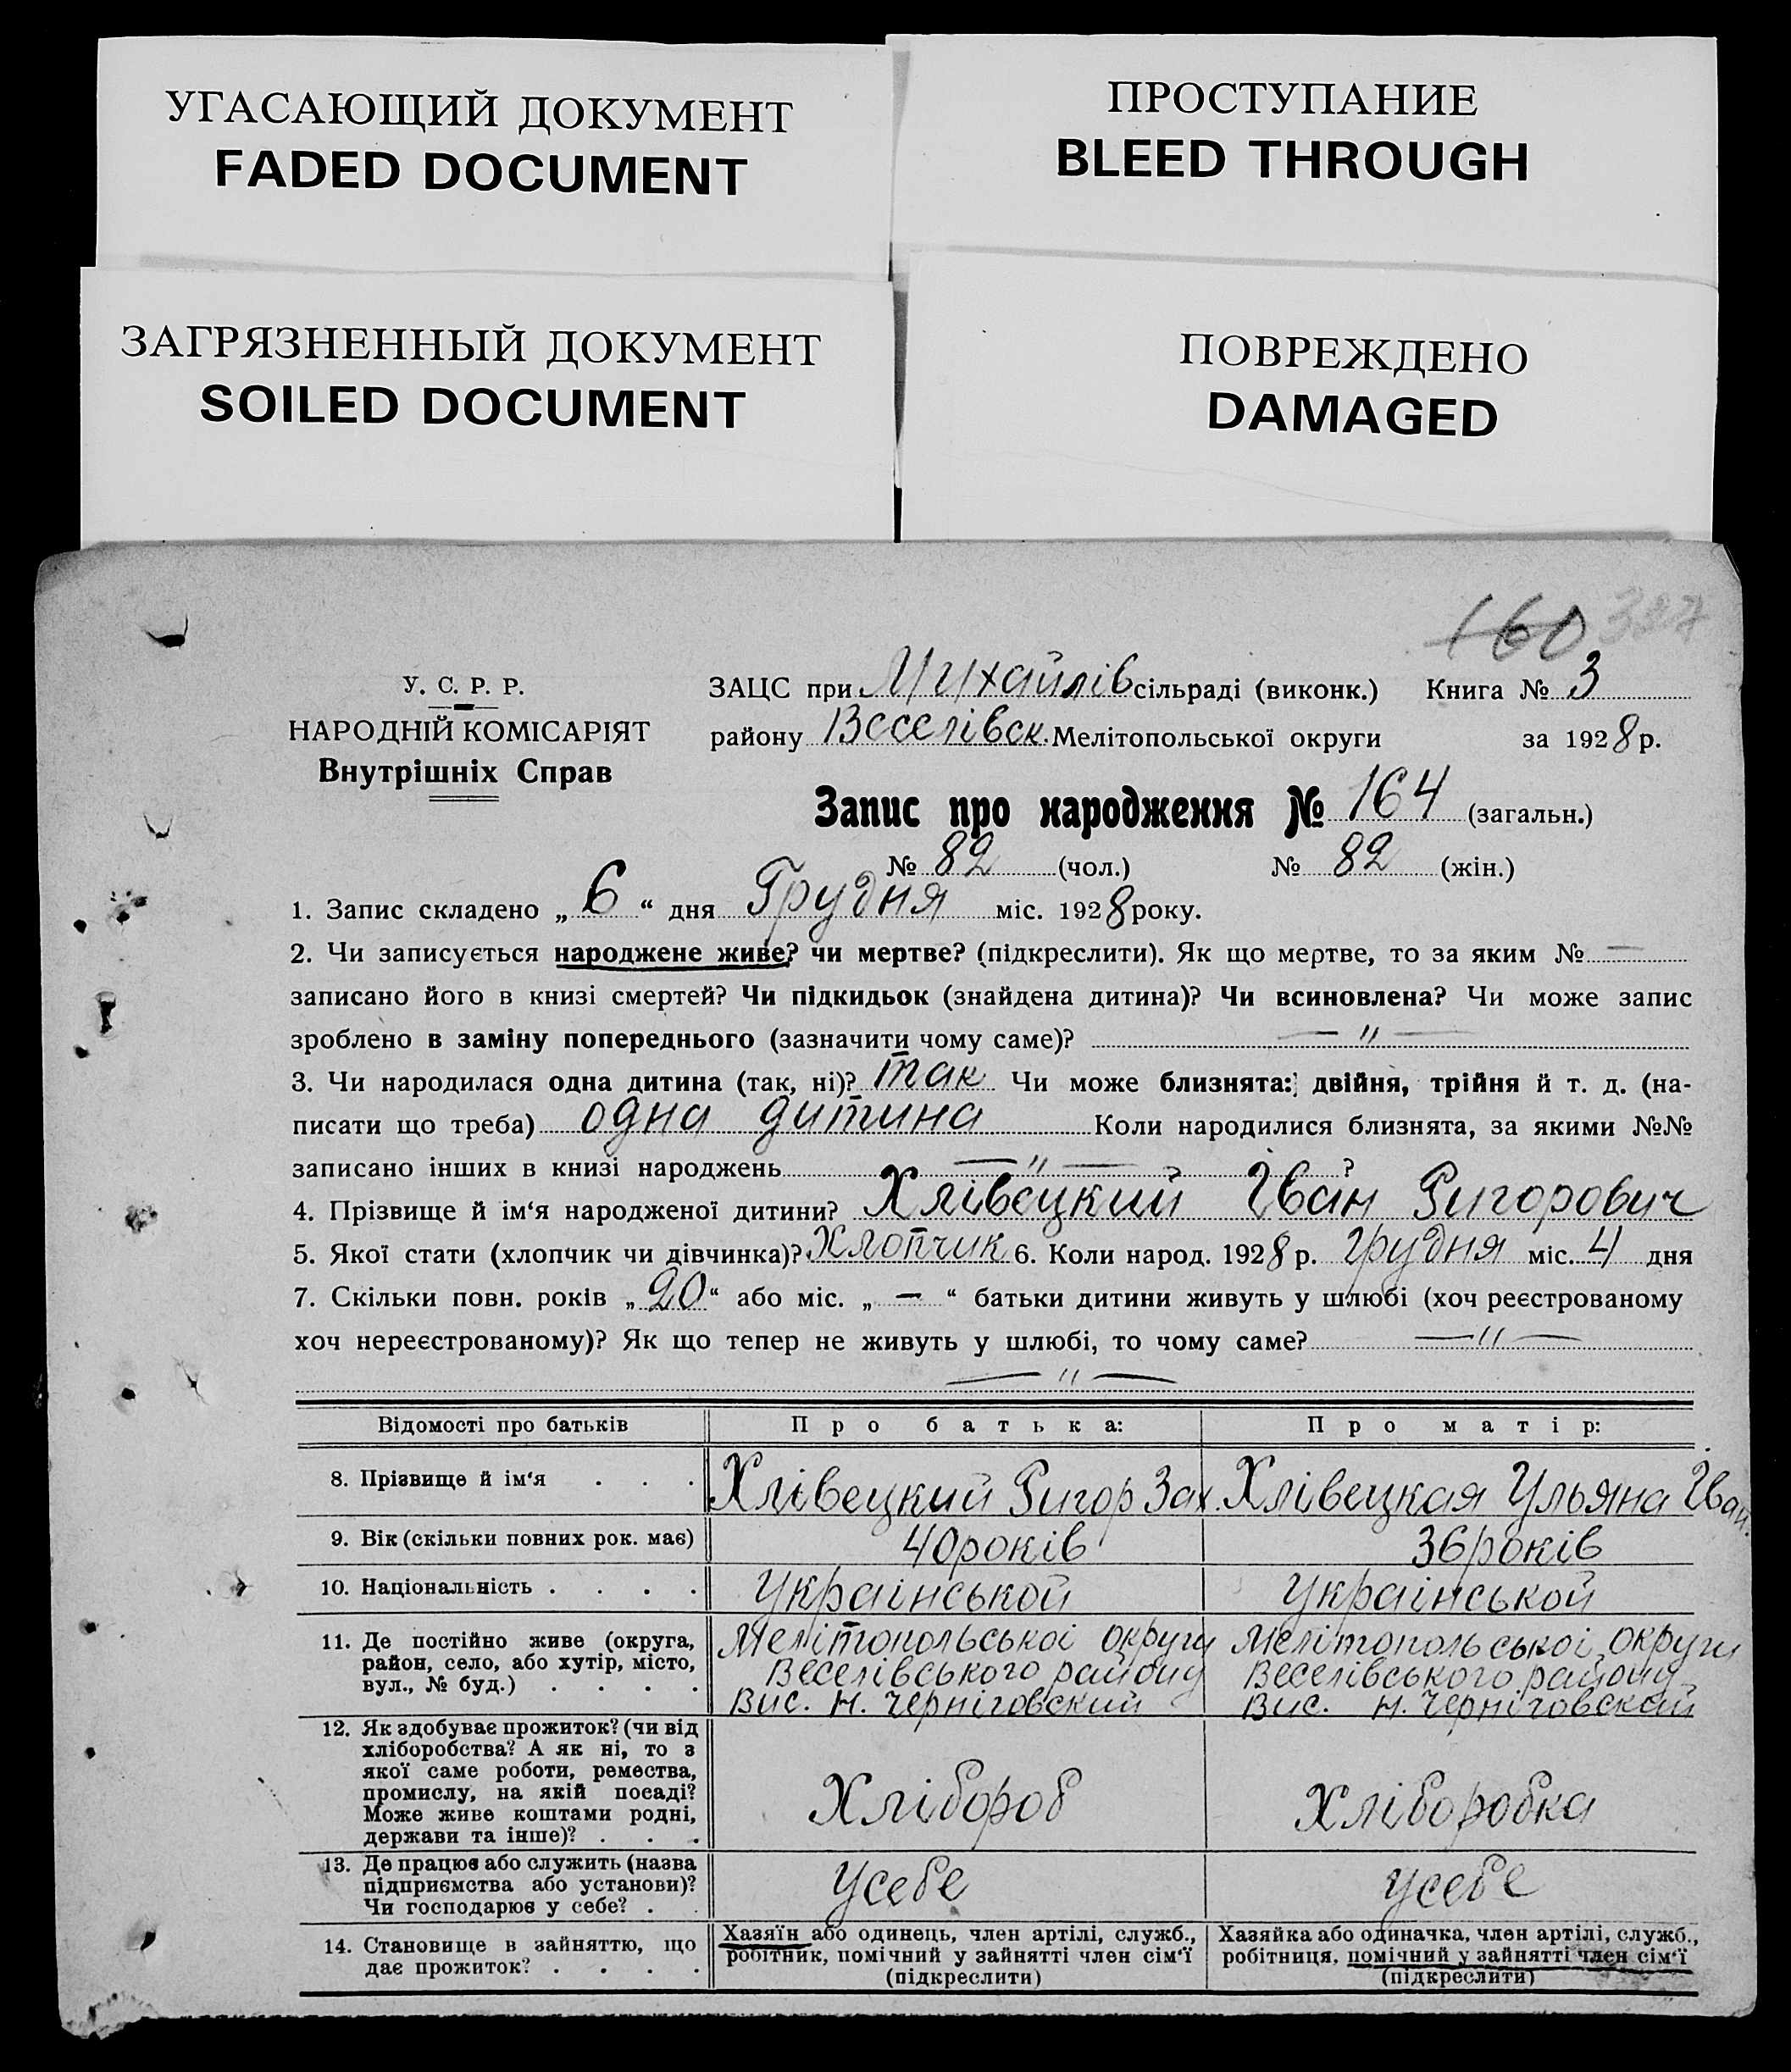 УГАСАЮЩИЙ ДОКУМЕНТ
FADED DOCUMENT
ПРОСТУПАНИЕ
BLEED THROUGH
ЗАГРЯЗНЕННЫЙ ДОКУМЕНТ
SOILED DOCUMENT
ПОВРЕЖДЕНО
DAMAGED
160 327
У. С. Р. Р.
НАРОДНІЙ КОМІСАРІЯТ
Внутрішніх Справ
ЗАЦС при Михайлів сільраді (виконк.) Книга № 3
району Веселівськ. Мелітопольської округи за 1928 р.
Запис про народження № 164 (загальн.)
№ 82 (чол.) № 82 (жін.)
1. Запис складено „ 6 “ дня Грудня міс. 1928 року.
2. Чи записується народжене живе? чи мертве? (підкреслити). Як що мертве, то за яким № —
записано його в книзі смертей? Чи підкидьок (знайдена дитина)? Чи всиновлена? Чи може запис
зроблено в заміну попереднього (зазначити чому саме)? — „ —
3. Чи народилася одна дитина (так, ні)? так Чи може близнята: двійня, трійня й т. д. (на-
писати що треба) одна дитина Коли народилися близнята, за якими №№
записано інших в книзі народжень — „ — ?
4. Прізвище й ім‘я народженої дитини? Хлівецкий Іван Григорович
5. Якої стати (хлопчик чи дівчинка)? Хлопчик 6. Коли народ. 1928 р. грудня міс. 4 дня
7. Скільки повн. років „ 20 “ або міс. „ — “ батьки дитини живуть у шлюбі (хоч реєстрованому
хоч нереєстрованому)? Як що тепер не живуть у шлюбі, то чому саме? — „ —
— „ —
Відомості про батьків Про батька: Про матір:
8. Прізвище й ім‘я . . . Хлівецкий Григор Зах. Хлівецкая Ульяна Іван.
9. Вік (скільки повних рок. має) 40 років 36 років
10. Національність . . . . Українськой Українськой
11. Де постійно живе (округа,
район, село, або хутір, місто,
вул., № буд.) . . . .
Мелітопольської округи
Веселівського району
Вис. Н. Черніговский
Мелітопольської округи
Веселівського району
Вис. Н. Черніговский
12. Як здобуває прожиток? (чи від
хліборобства? А як ні, то з
якої саме роботи, ремества,
промислу, на якій посаді?
Може живе коштами родні,
держави та інше)? . . .
Хлібороб
Хліборобка
13. Де працює або служить (назва
підприємства або установи)?
Чи господарює у себе? . .
Усебе
Усебе
14. Становище в зайняттю, що
дає прожиток? . . . .
Хазяїн або одинець, член артілі, служб.,
робітник, помічний у зайнятті член сім‘ї
(підкреслити)
Хазяйка або одиначка, член артілі, служб.,
робітниця, помічний у зайнятті член сім‘ї
(підкреслити)